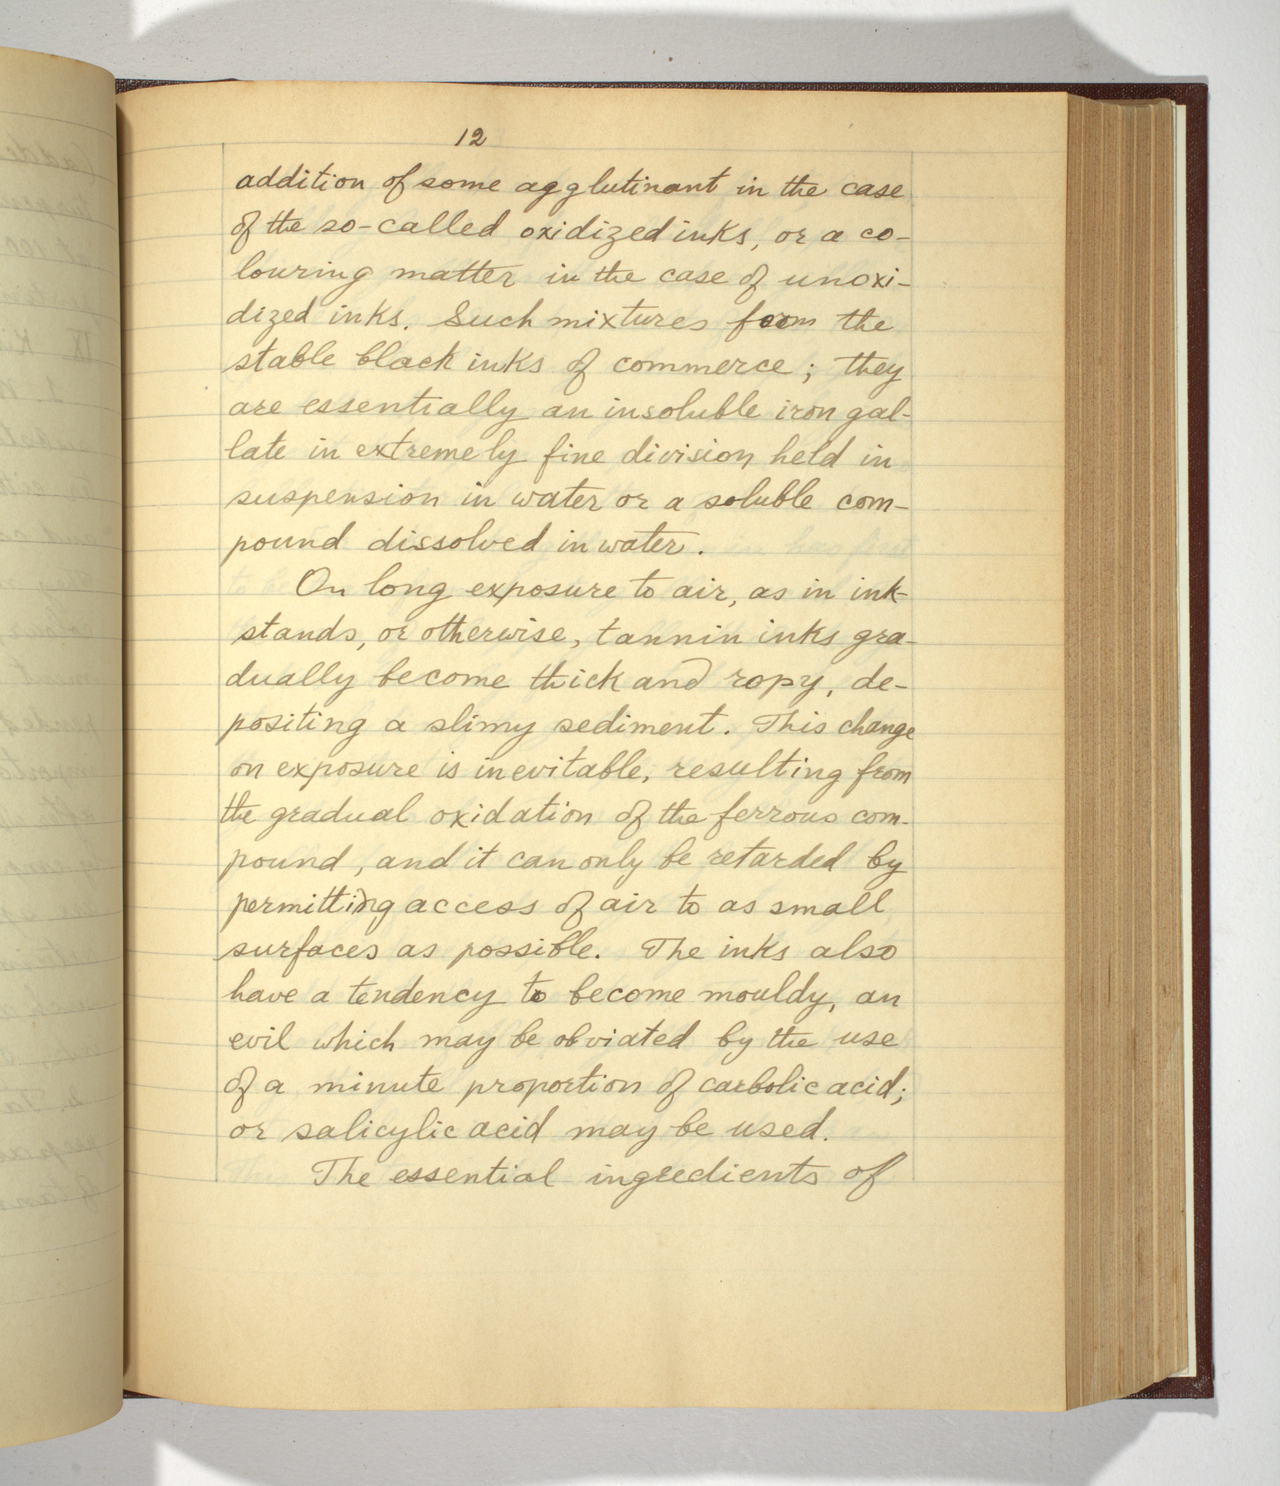 12
addition of some agglutinant in the case
of the so-called oxidized inks, or a co-
louring matter in the case of unoxi-
dized inks. Such mixtures form the
stable black inks of commerce; they
are essentially an insoluble iron gal-
late in extremely fine division held in
suspension in water or a soluble com-
pound dissolved in water.
On long exposure to air, as in ink-
stands, or otherwise, tannin inks gra-
dually become thick and ropy, de-
positing a slimy sediment. This change
on exposure is inevitable, resulting from
the gradual oxidation of the ferrous com-
pound, and it can only be retarded by
permitting access of air to as small
surfaces as possible. The inks also
have a tendency to become mouldy, an
evil which may be obviated by the use
of a minute proportion of carbolic acid;
or salicylic acid may be used.
The essential ingredients of